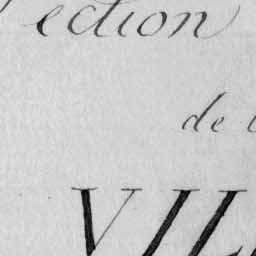 ection
de l
VIL